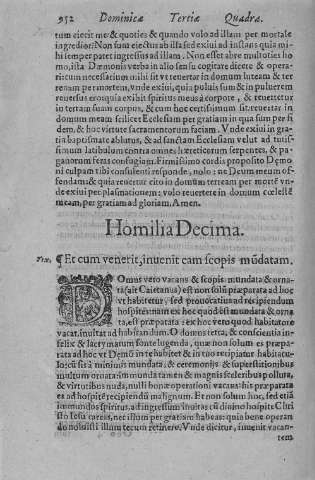 952 Dominicæ Tertiæ Quadræ.
tum eierit me: & quoties & quando volo ad illam per mortale
ingredior: Non sum eiectus ab illa sed exiui ad instans quia mi-
hi semper patet ingressus ad illam. Non esset abre multoties ho
mo, ista Dæmonis verba in alio sensu cogitare dicete & opera-
ri cum necessarium mihi sit vt reuertar in domum luteam & ter
renam per mortem, vnde exiui, quia puluis sum & in puluerem
reuersus ero: quia exibit spiritus meus à corpore, & reuertetur
in terram suam corpus, & cum hoc certissimum sit. reuertar in
domum meam scilicet Ecclesiam per gratiam in qua sum per fi
dem, & hoc virtute sacramentorum faciam. Vnde exiui in gra-
tia baptismate ablutus, & ad sanctam Ecclesiam velut ad tutis-
simum latibulum contra omnes hæreticorum serpentes, & pa-
ganorum feras confugiam. Firmissimo cordis proposito Dæmo
ni culpam tibi consulenti responde, nolo: ne Deum meum of-
fendam: & quia reuertar cito in domum terream per mortē vn-
de exiui per plasmationem: volo reuertere in domum ecclesiē
meam, per gratiam ad gloriam, Amen.
Homilia Decima.
¶ Et cum venerit, inuenit eam scopis mūdatam.
DOmus vero vacans & scopis mundata & orna-
ta (ait Caietanus) est non solū præparata ad hoc
vt habitetur, sed prouocatiua ad recipiendum
hospitē: nam ex hoc quòd est mundata & orna
ta, est præparata: ex hoc vero quod habitatore
vacat, inuitat ad habitandum. O domus tetra, & conscientia in-
felix & lacrymarum fonte lugenda, quæ non solum es præpa-
rata ad hoc vt Dæmō in te habitet & in tuo recipiatur habitacu-
lo: cū sis à minimis mundata, & ceremonijs & superstitionibus
multum ornata: immunda tamen & magnis sceleribus polluta,
& virtutibus nuda, nulli bonæ operationi vacans: his præparata
es ad hospitē recipiendū malignum. Et non solum hoc, sed etiā
immundos spiritus, ad ingressum inuitas: cū diuino hospite Chri
sto Iesu careas, nec illum per gratiam habeas: quia bene operan
do noluisti illum tecum retinere. Vnde dicitur, inuenit vacan-
tem